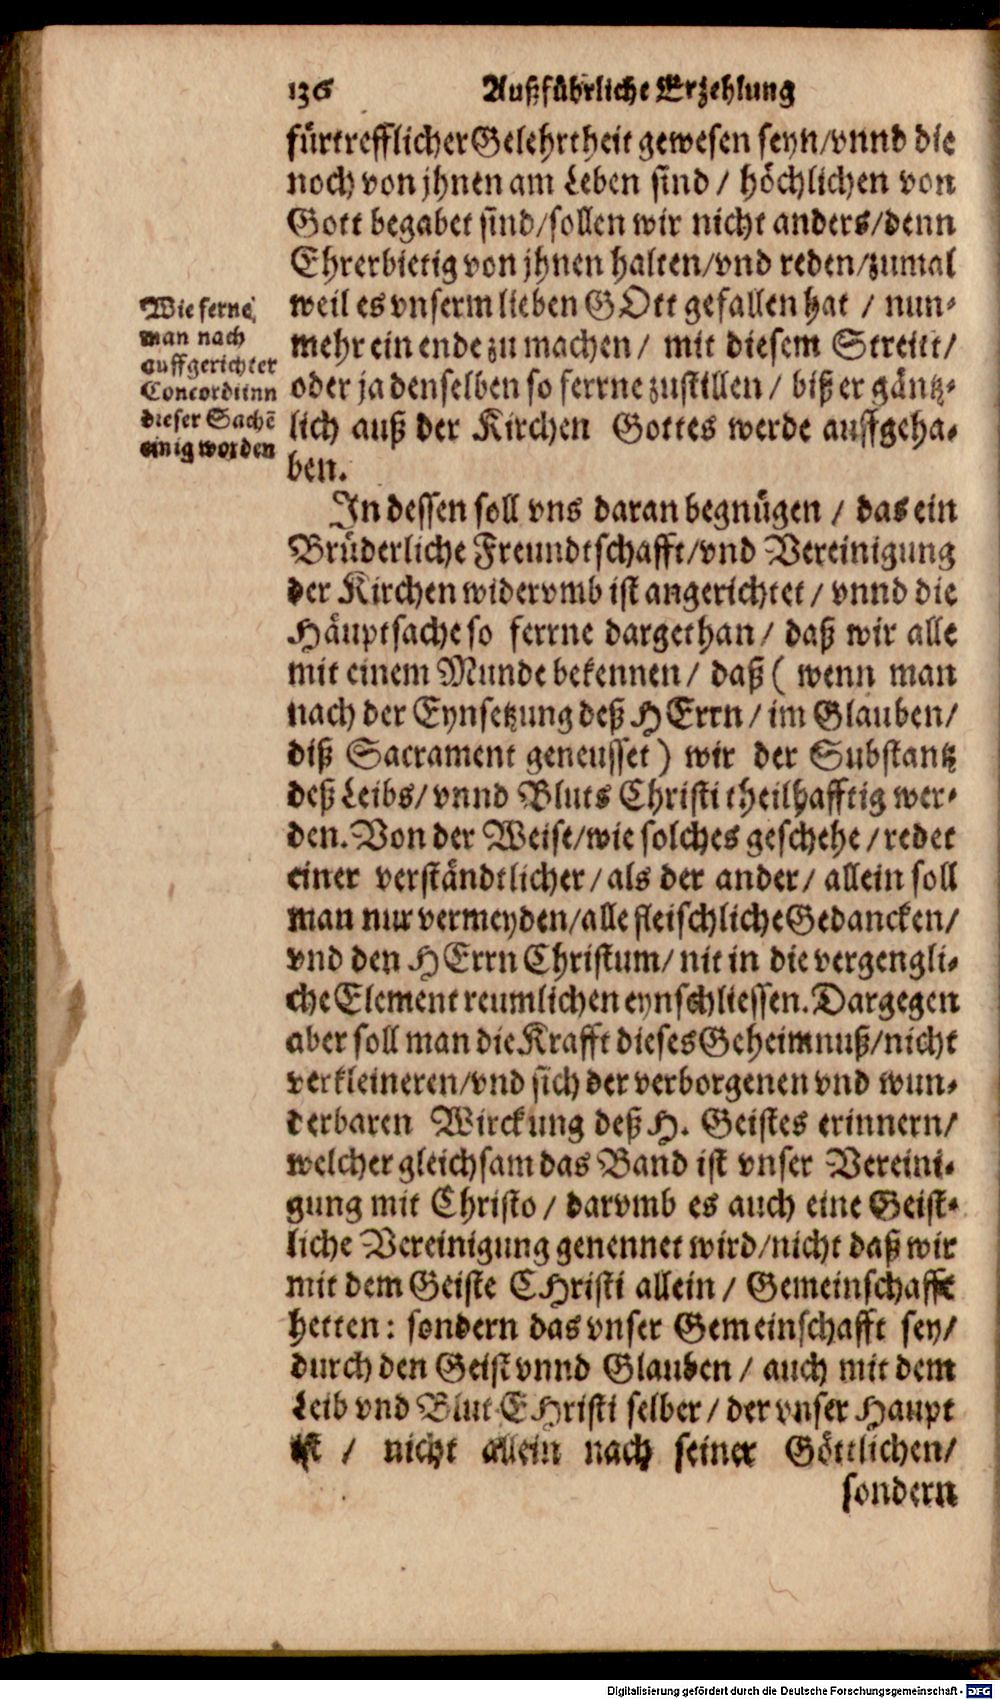 136 Außführliche Erzehlung
fürtrefflicher Gelehrtheit gewesen seyn/vnnd die
noch von jhnen am Leben sind / höchlichen von
Gott begabet sind/sollen wir nicht anders/denn
Ehrerbietig von jhnen halten/vnd reden/zumal
weil es vnserm lieben GOtt gefallen hat / nun-
mehr ein ende zu machen / mit diesem Streitt/
oder ja denselben so ferrne zustillen / biß er gäntz-
lich auß der Kirchen Gottes werde auffgeha-
ben.
Wie ferne,
man nach
auffgerichter
Concordiinn
dieser Sachē
einig worden
In dessen soll vns daran begnügen / das ein
Brüderliche Freundtschafft/vnd Vereinigung
der Kirchen widervmb ist angerichtet / vnnd die
Häuptsache so ferrne dargethan / daß wir alle
mit einem Munde bekennen / daß ( wenn man
nach der Eynsetzung deß HErrn / im Glauben/
diß Sacrament geneusset ) wir der Substantz
deß Leibs/ vnnd Bluts Christi theilhafftig wer-
den. Von der Weise/wie solches geschehe / redet
einer verständtlicher / als der ander / allein soll
man nur vermeyden/alle fleischliche Gedancken/
vnd den HErrn Christum/ nit in die vergengli-
che Element reumlichen eynschliessen. Dargegen
aber soll man die Krafft dieses Geheimnuß/nicht
verkleineren/vnd sich der verborgenen vnd wun-
derbaren Wirckung deß H. Geistes erinnern/
welcher gleichsam das Band ist vnser Vereini-
gung mit Christo / darvmb es auch eine Geist-
liche Vereinigung genennet wird/nicht daß wir
mit dem Geiste CHristi allein / Gemeinschafft
hetten: sondern das vnser Gemeinschafft sey/
durch den Geist vnnd Glauben / auch mit dem
Leib vnd Blut CHristi selber / der vnser Haupt
ist / nicht allein nach seiner Göttlichen/
sondern
Digitalisierung gefördert durch die Deutsche Forschungsgemeinschaft - DFG